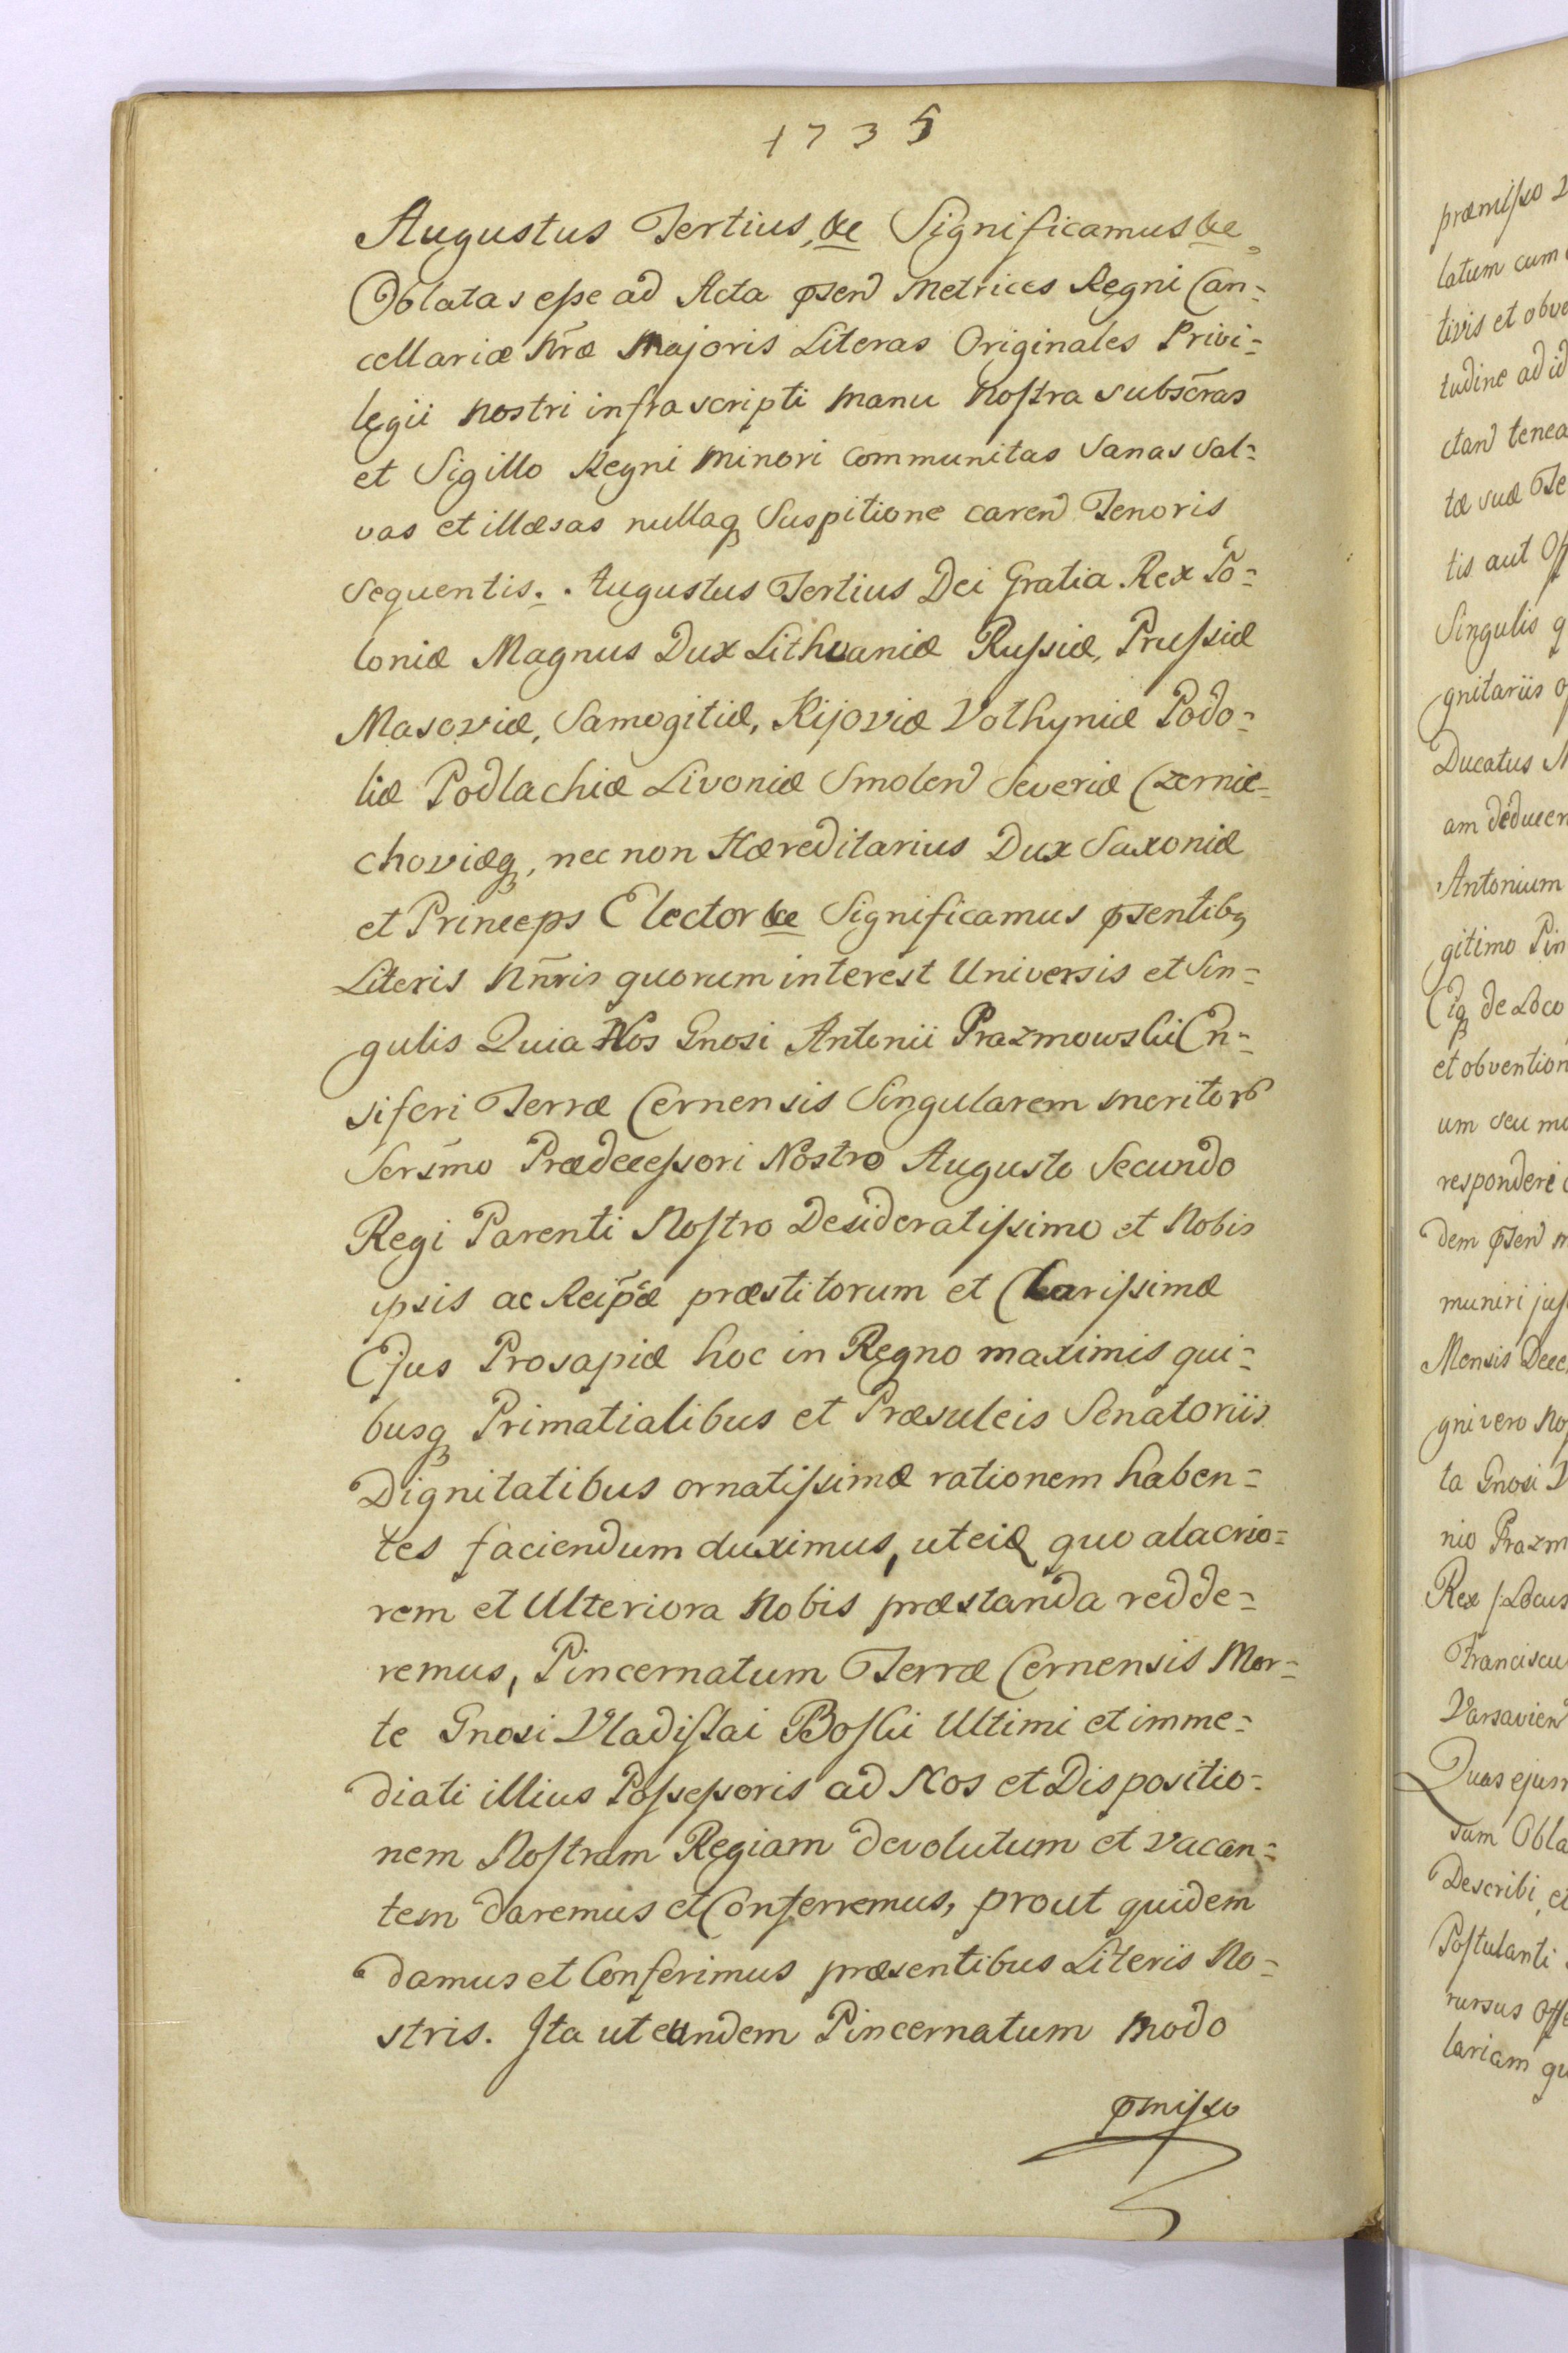 1735
Augustus Tertius, &c Significamus &c
Oblatas esse ad Acta pñsen Metrices Regni Can=
cellariæ Nrã Majoris Literas Originales Privi=
legii nostri infrascripti manu Nostra subscr̃as
et Sigillo Regni minori communitas Sanas Sal=
vas et illæsas nullaq Suspitione caren Tenoris
sequentis. Augustus Tertius Dei Gratia Rex Po=
loniæ Magnus Dux Lithuaniæ Russiæ, Prussiæ
Masoviæ, Samogitiæ, Kijoviæ Volhyniæ Podo=
liæ Podlachiæ Livoniæ Smolen Severiæ Czernie=
choviæq, nec non Hæreditarius Dux Saxoniæ
et Princeps Elector &c Significamus pñsentibq
Literis Nñris quorum interest Universis et Sin=
gulis Quia Nos Gnosi Antonii Prazmowski En=
siferi Terræ Cernensis Singularem meritor
Sersm̃o Prædecessori Nostro Augusto Secundo
Regi Parenti Nostro Desideratissimo et Nobis
ipsis ac Reip̃cæ præstitorum et Clarissimæ
Ejus Prosapiæ hoc in Regno maximis qui=
busq Primatialibus et Præsuleis Senatoriis
Dignitatibus ornatissimæ rationem haben=
tes faciendum duximus, ut eiq quo alacrio=
rem et Ulteriora Nobis præstanda redde=
remus, Pincernatum Terræ Cernensis Mor=
te Gnosi Vladislai Boski Ultimi et imme=
diati illius Possessoris ad Nos et Dispositio=
nem Nostram Regiam devolutum et vacan=
tem daremus et Conferremus, prout quidem
damus et Conferimus præsentibus Literis No=
stris. Ita ut eundem Pincernatum modo
pmisso
præmisso
latum cum
tivis et obve
tudine ad id
ctan tenea
tæ suæ Te
tis aut Off
Singulis q
gnitariis o
Ducatus M
am deducen
Antonium
gitimo Pin
Eiq de Loco
et obvention
um seu mo
respondere
dem pñsen m
muniri jus
Mensis Dece
gni vero No
ta Gnosi
nio Prazm
Rex /:Locus
Franciscu
Varsavien
Quas ejusm
sum Obla
Describi, et
Postulanti
rursus Offe
lariam qu